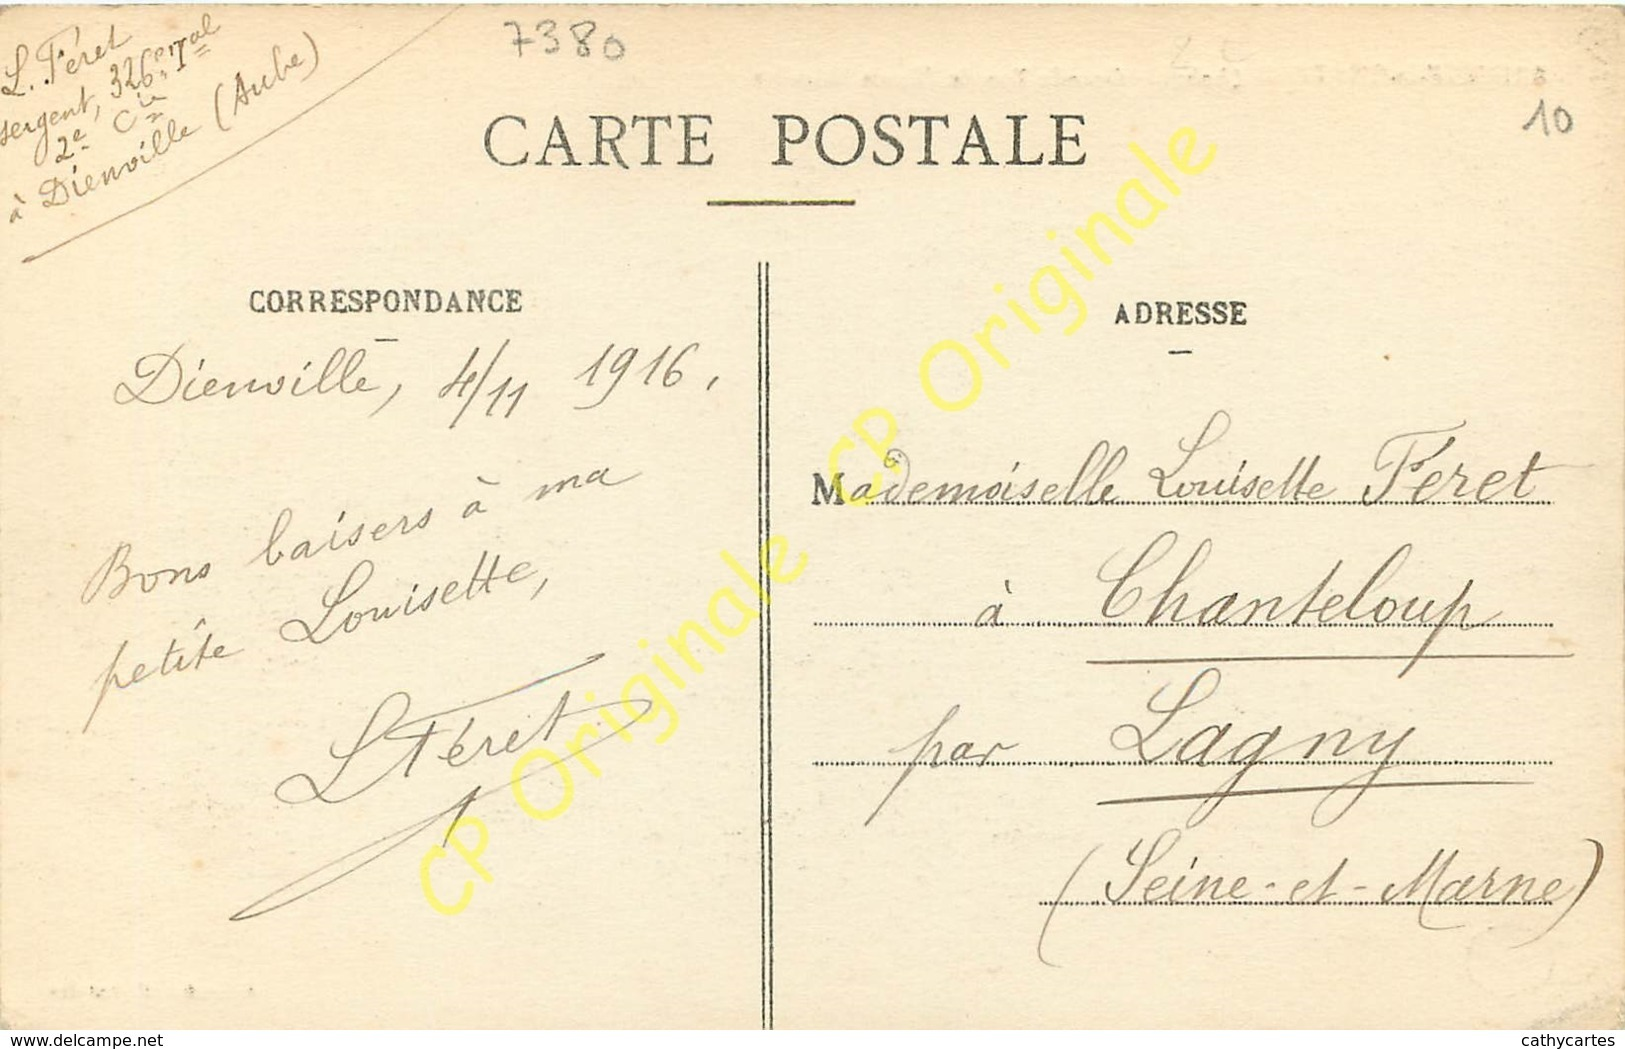 L. Féret
sergent, 326e Tal
2e Cie
à Dienville (Aube)
7380
10
CARTE POSTALE
CORRESPONDANCE
Dienville, 4/11 1916.
Bons baisers à ma
petite Louisette,
LFéret
ADRESSE
Mademoiselle Louisette Féret
à Chanteloup
par Lagny
(Seine-et-Marne)
CP Originale CP Originale CP Originale
www.delcampe.net
cathycartes